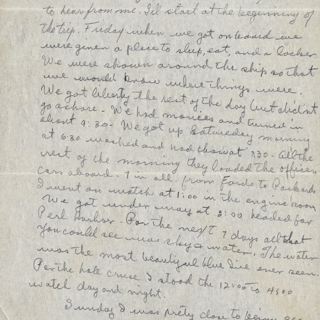 to hear from me. I'll start at the beginning of
the trip. Friday when we got on board we
were given a place to sleep, eat, and a locker
We were shown around the ship so that
we would know where things were.
We got liberty the rest of the day but didn't
go ashore. We had movies and turned in
about 9:30. We got up Saturday morning
at 6:30 washed and had chow at 730. All the
rest of the morning they loaded the officers
cars aboard. in all from Fords to Packards
I went on watch at 1:00 in the engine room
We got under way at 2:00 headed for
Perl Harbor. For the next 7 days all that
you could see was sky & water. The water
was the most beautyful blue I've ever seen.
For the hole cruse I stood the 12:00 to 4:00
watch day and night.
Sunday I was prety close to being sea